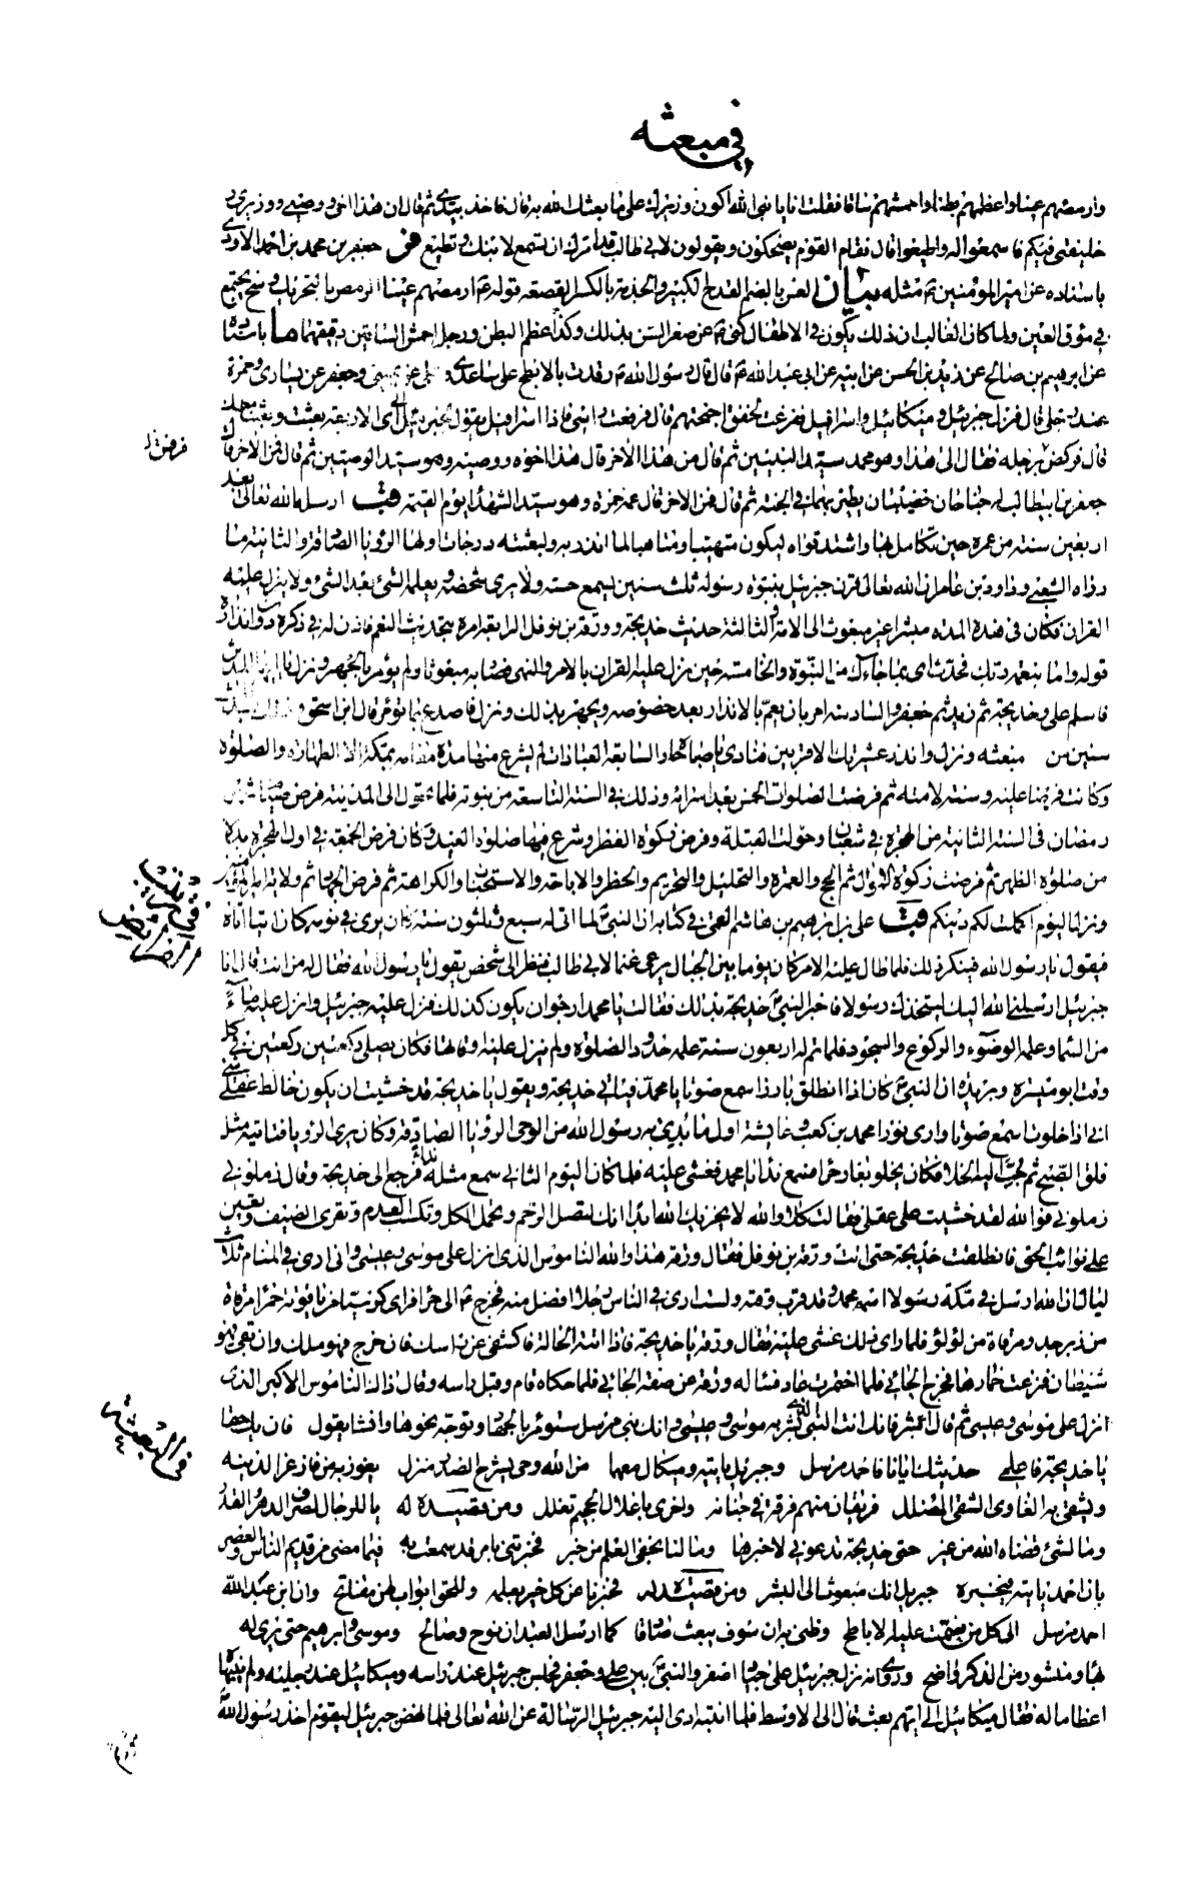 في مبعثه
وارمصهم عينا واعظمهم بطنا واحمشهم ساقا فقلت انا يا نبى الله اكون وزيرك على ما بعثك الله به قال فاخذ بيدي ثم قال ان هذا اخى ووصيي ووزيرى
خليفتى فيكم فاسمعوا له واطيعوا قال فقام القوم يضحكون ويقولون لابي طالب قد امرك ان تسمع لابنك وتطيع جعفر بن محمد بن احمد الاودي
باسناده عن امير المؤمنين ع مثله بيان العس بالضم القدح الكبير والجذمة بالكسر القصعة قوله ع ارمصهم عينا الرمص بالتحريك وسخ يجتمع
في موق العين ولما كان الغالب ان ذلك يكون في الاطفال كنى ع عن صغر السن بذلك وكذا عظم البطن ورجل احمش الساقين دقيقهما ما باسناد
عن ابرهيم بن صالح عن زيد بن الحسن عن ابيه عن ابي عبد الله ع قال قال رسول الله ص رقدت بالابطح على ساعدي وعلى عن يميني وجعفر عن يسارى وحمزة
عند رجلى قال فنزل جبرئيل وميكائيل واسرافيل ففزعت لخفق اجنحتهم قال فرفعت راسى فاذا اسرافيل يقول لجبرئيل الى اى الاربعة بعثت وبعثنا معك
قال فركض برجله فقال الى هذا وهو محمد سيد النبيين ثم قال من هذا الاخر قال هذا اخوه ووصيه وهو سيد الوصيين ثم قال فمن الاخر قال
جعفر بن ابيطالب له جناحان خضيبان يطير بهما في الجنة ثم قال فمن الاخر قال عمه حمزة وهو سيد الشهداء يوم القيمة قب ارسله الله تعالى بعد
اربعين سنة من عمره حين تكامل بها واشتد قواه ليكون متهيبا ومتاهبا لما انذر به ولبعثته درجات اولها الرؤيا الصادقة والثانية ما
رواه الشعبي وداود بن عامر ان الله تعالى قرن جبرئيل بنبوة رسوله ثلث سنين يسمع حسه ولا يرى شخصه ويعلمه الشئ بعد الشئ ولا ينزل عليه
القران فكان في هذه المدة مبشرا غير مبعوث الى الامة والثالثة حديث خديجة وورقة بن نوفل الرابعة امره بتحديث النعم فاذن له في ذكره دون انذاره
قوله واما بنعمة ربك فحدث اى بما جاءك من النبوة والخامسة حين نزل عليه القران بالامر والنهى فصار به مبعوثا ولم يؤمر بالجهر ونزل يا ايها المدثر
فاسلم على وخديجة ثم زيد ثم جعفر والسادسة امر بان يعم بالانذار بعد خصوصه ويجهر بذلك ونزل فاصدع بما تؤمر قال ابن اسحق وذلك بعد ثلث
سنين من مبعثه ونزل وانذر عشيرتك الاقربين فنادى يا صباحاه والسابعة العبادات لم يشرع منها مدة مقامه بمكة الا الطهارة والصلوة
وكانت فرضا عليه وسنة لامته ثم فرضت الصلوات الخمس بعد اسرائه وذلك في السنة التاسعة من نبوته فلما تحول الى المدينة فرض صيام شهر
رمضان في السنة الثانية من الهجرة في شعبان وحولت القبلة وفرض زكوة الفطر وشرع فيها صلوة العيد وكان فرض الجمعة في اول الهجرة بدلا
من صلوة الظهر ثم فرضت زكوة الاموال ثم الحج والعمرة والتحليل والتحريم والحظر والاباحة والاستحباب والكراهة ثم فرض الجهاد ثم ولاية امير المؤمنين
ونزل اليوم اكملت لكم دينكم قب على بن ابرهيم بن هاشم القمى في كتابه ان النبي لما اتى له سبع وثلثون سنة كان يرى في نومه كان اتيا اتاه
فيقول يا رسول الله فينكر ذلك فلما طال عليه الامر كان يوما بين الجبال يرعى غنما لابي طالب فنظر الى شخص يقول يا رسول الله فقال له من انت قال انا
جبرئيل ارسلنى الله اليك ليتخذك رسولا فاخبر النبي خديجة بذلك فقالت يا محمد ارجو ان يكون كذلك فنزل عليه جبرئيل وانزل عليه ماء
من السماء وعلمه الوضوء والركوع والسجود فلما تم له اربعون سنة علمه حدود الصلوة ولم ينزل عليه اوقاتها فكان يصلى ركعتين ركعتين في كل
وقت ابو ميسرة وبريدة ان النبي كان اذا انطلق بارزا سمع صوتا يا محمد فياتي خديجة ويقول يا خديجة قد خشيت ان يكون خالط عقلي شئ
انى اذا خلوت اسمع صوتا وارى نورا محمد بن كعب وعايشة اول ما بدئ به رسول الله من الوحى الرؤيا الصادقة وكان يرى الرؤيا فتاتيه مثل
فلق الصبح ثم حبب اليه الخلا فكان يخلو بغار حرا فسمع نداء يا محمد فغشى عليه فلما كان اليوم الثاني سمع مثله نداء فرجع الى خديجة وقال زملوني
زملوني فوالله لقد خشيت على عقلى فقالت كلا والله لا يخزيك الله ابدا انك لتصل الرحم وتحمل الكل وتكسب المعدم وتقرى الضيف وتعين
على نوائب الحق فانطلقت خديجة حتى اتت ورقة بن نوفل فقال ورقة هذا والله الناموس الذى انزل على موسى وعيسى وانى ارى في المنام ثلاث
ليال ان الله ارسل في مكة رسولا اسمه محمد وقد قرب وقته ولست ارى في الناس رجلا افضل منه فخرج ص الى حرا فراى كرسيا من ياقوتة حمراء مرقاة
من زبرجد ومرقاة من لؤلؤ فلما راى ذلك غشى عليه فقال ورقة يا خديجة فاذا اتته الحالة فاكشفى عن راسك فان خرج فهو ملك وان بقى فهو
شيطان فنزعت خمارها فخرج الجائى فلما اختمرت عاد فساله ورقة عن صفة الجائى فلما حكاه قام وقبل راسه وقال ذاك الناموس الاكبر الذى
انزل على موسى وعيسى ثم قال ابشر فانك انت النبي الذي بشر به موسى وعيسى وانك نبى مرسل ستؤمر بالجهاد وتوجه نحوها وانشا يقول فان يك حقا
يا خديجة فاعلمى حديثك ايانا فاحمد مرسل وجبريل ياتيه وميكال معهما من الله وحى يشرح الصدر منزل يفوز به من فاز عزا لدينه
ويشقى به الغاوى الشقى المضلل فريقان منهم فرقة في جنانه واخرى باغلال الجحيم تغلل ومن قصيدة له يا للرجال لصرف الدهر والقدر
وما لشئ قضاه الله من غير حتى خديجة تدعوني لاخبرها وما لنا بخفى العلم من خبر فخبرتنى بامر قد سمعت به فيما مضى من قديم الناس والعصر
بان احمد ياتيه فيخبره جبريل انك مبعوث الى البشر ومن قصيدة له فخبرنا عن كل خير بعلمه وللحق ابواب لهن مفاتح وان ابن عبد الله
احمد مرسل الى كل من ضمت عليه الاباطح وظنى به ان سوف يبعث صادقا كما ارسل العبدان نوح وصالح وموسى وابرهيم حتى يرى له
بهاء ومنشور من الذكر واضح وروى انه نزل جبرئيل على جياد اصفر والنبي بين على وجعفر فجلس جبرئيل عند راسه وميكائيل عند رجليه ولم ينبهاه
اعظاما له فقال ميكائيل الى ايهم بعثت قال الى الاوسط فلما انتبه ادى اليه جبرئيل الرسالة عن الله تعالى فلما نهض جبرئيل ليقوم اخذ رسول الله